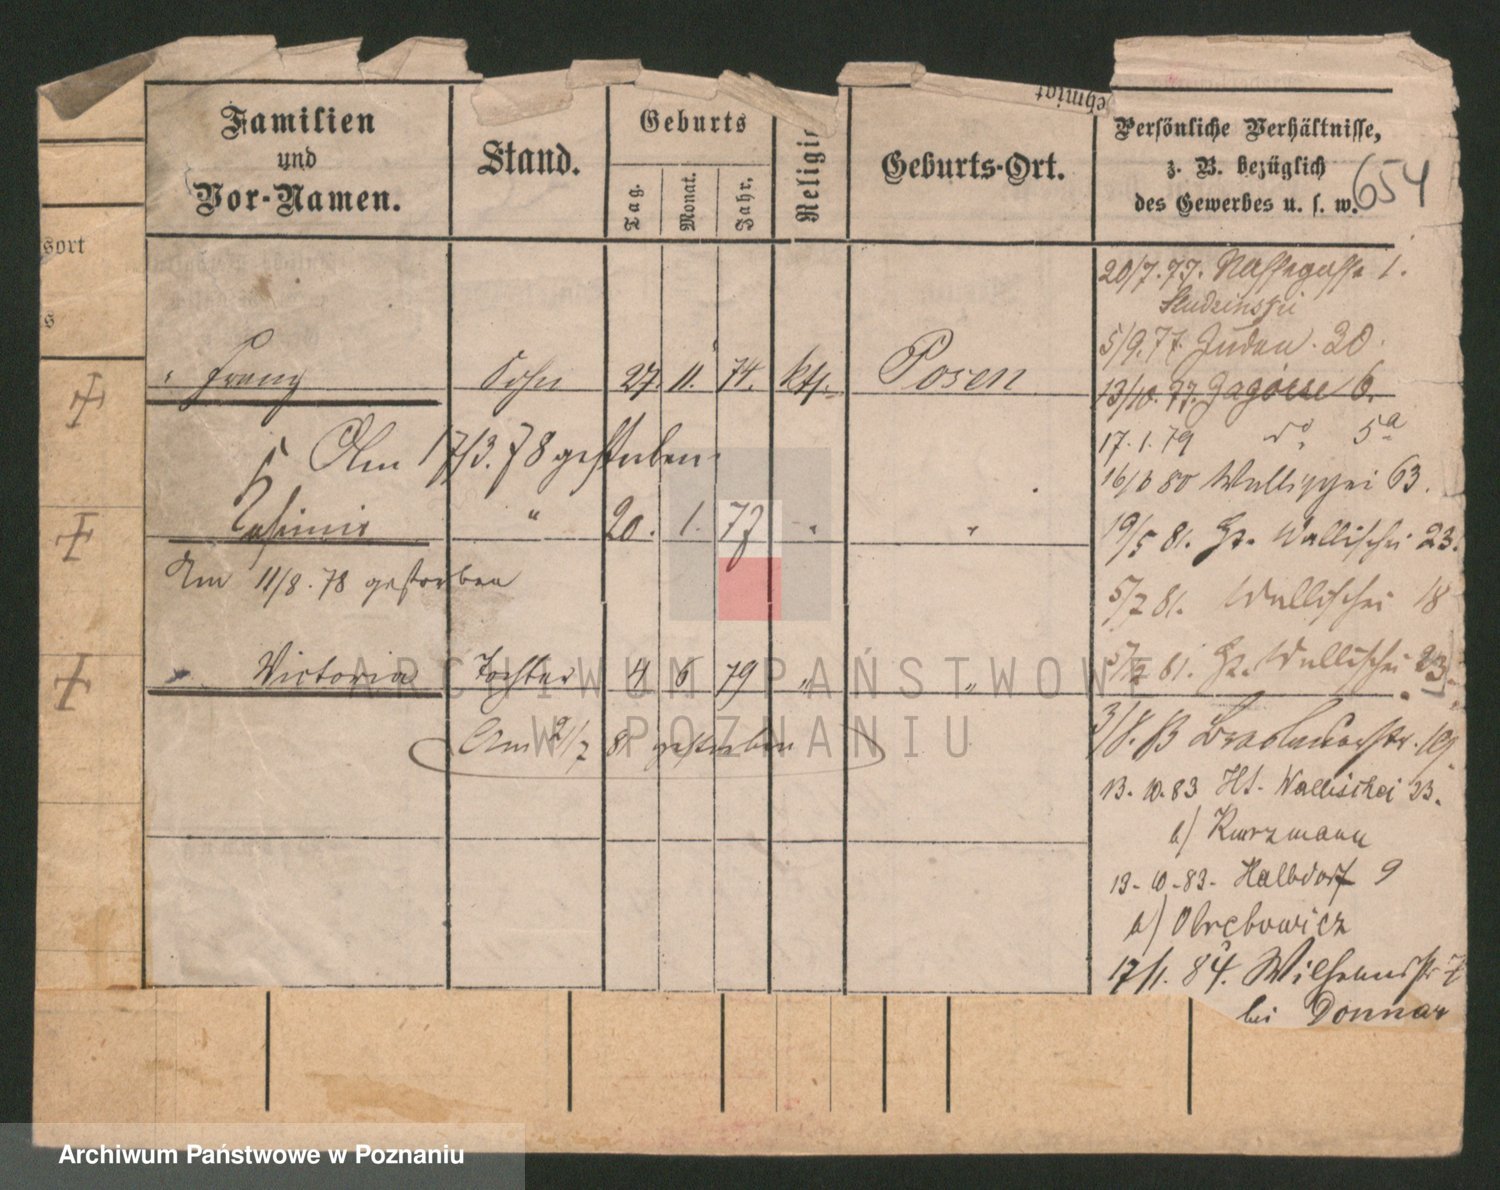 Familien
und
Vor-Namen.
Stand.
Geburts
Tag.
Monat.
Jahr.
Religi
Geburts-Ort.
chmidt
Persönliche Verhältnisse,
z. B. bezüglich
des Gewerbes u. s. w.
654
sort
s
20/7.77. Nassegasse 1.
Studzinski
5/9.77. Juden. 20.
Franz Sohn 27. 11. 74. kth. Posen
13/10.77. Zagorze 6.
17.1.79 do 5a
Am 17/3.78 gestorben
80 Wallischei 63.
Kasimir " 20. 1. 77 " "
19/5 81. Hz. Wallischei 23.
Am 11/8.78 gestorben
5/7 81. Wallischei 18
Victoria Tochter 4 6 79 " "
81. Hz. Wallischei 23
Am 2/7 81 gestorben
3/8.
19.
13.10.83 Ht. Wallischei 33.
b/ Kurzmann
13-10-83- Halbdorf 9
b/ Obrębowicz
17/1. 84. 7
bei Donnar
ARCHIWUM PAŃSTWOWE
W POZNANIU
Archiwum Państwowe w Poznaniu